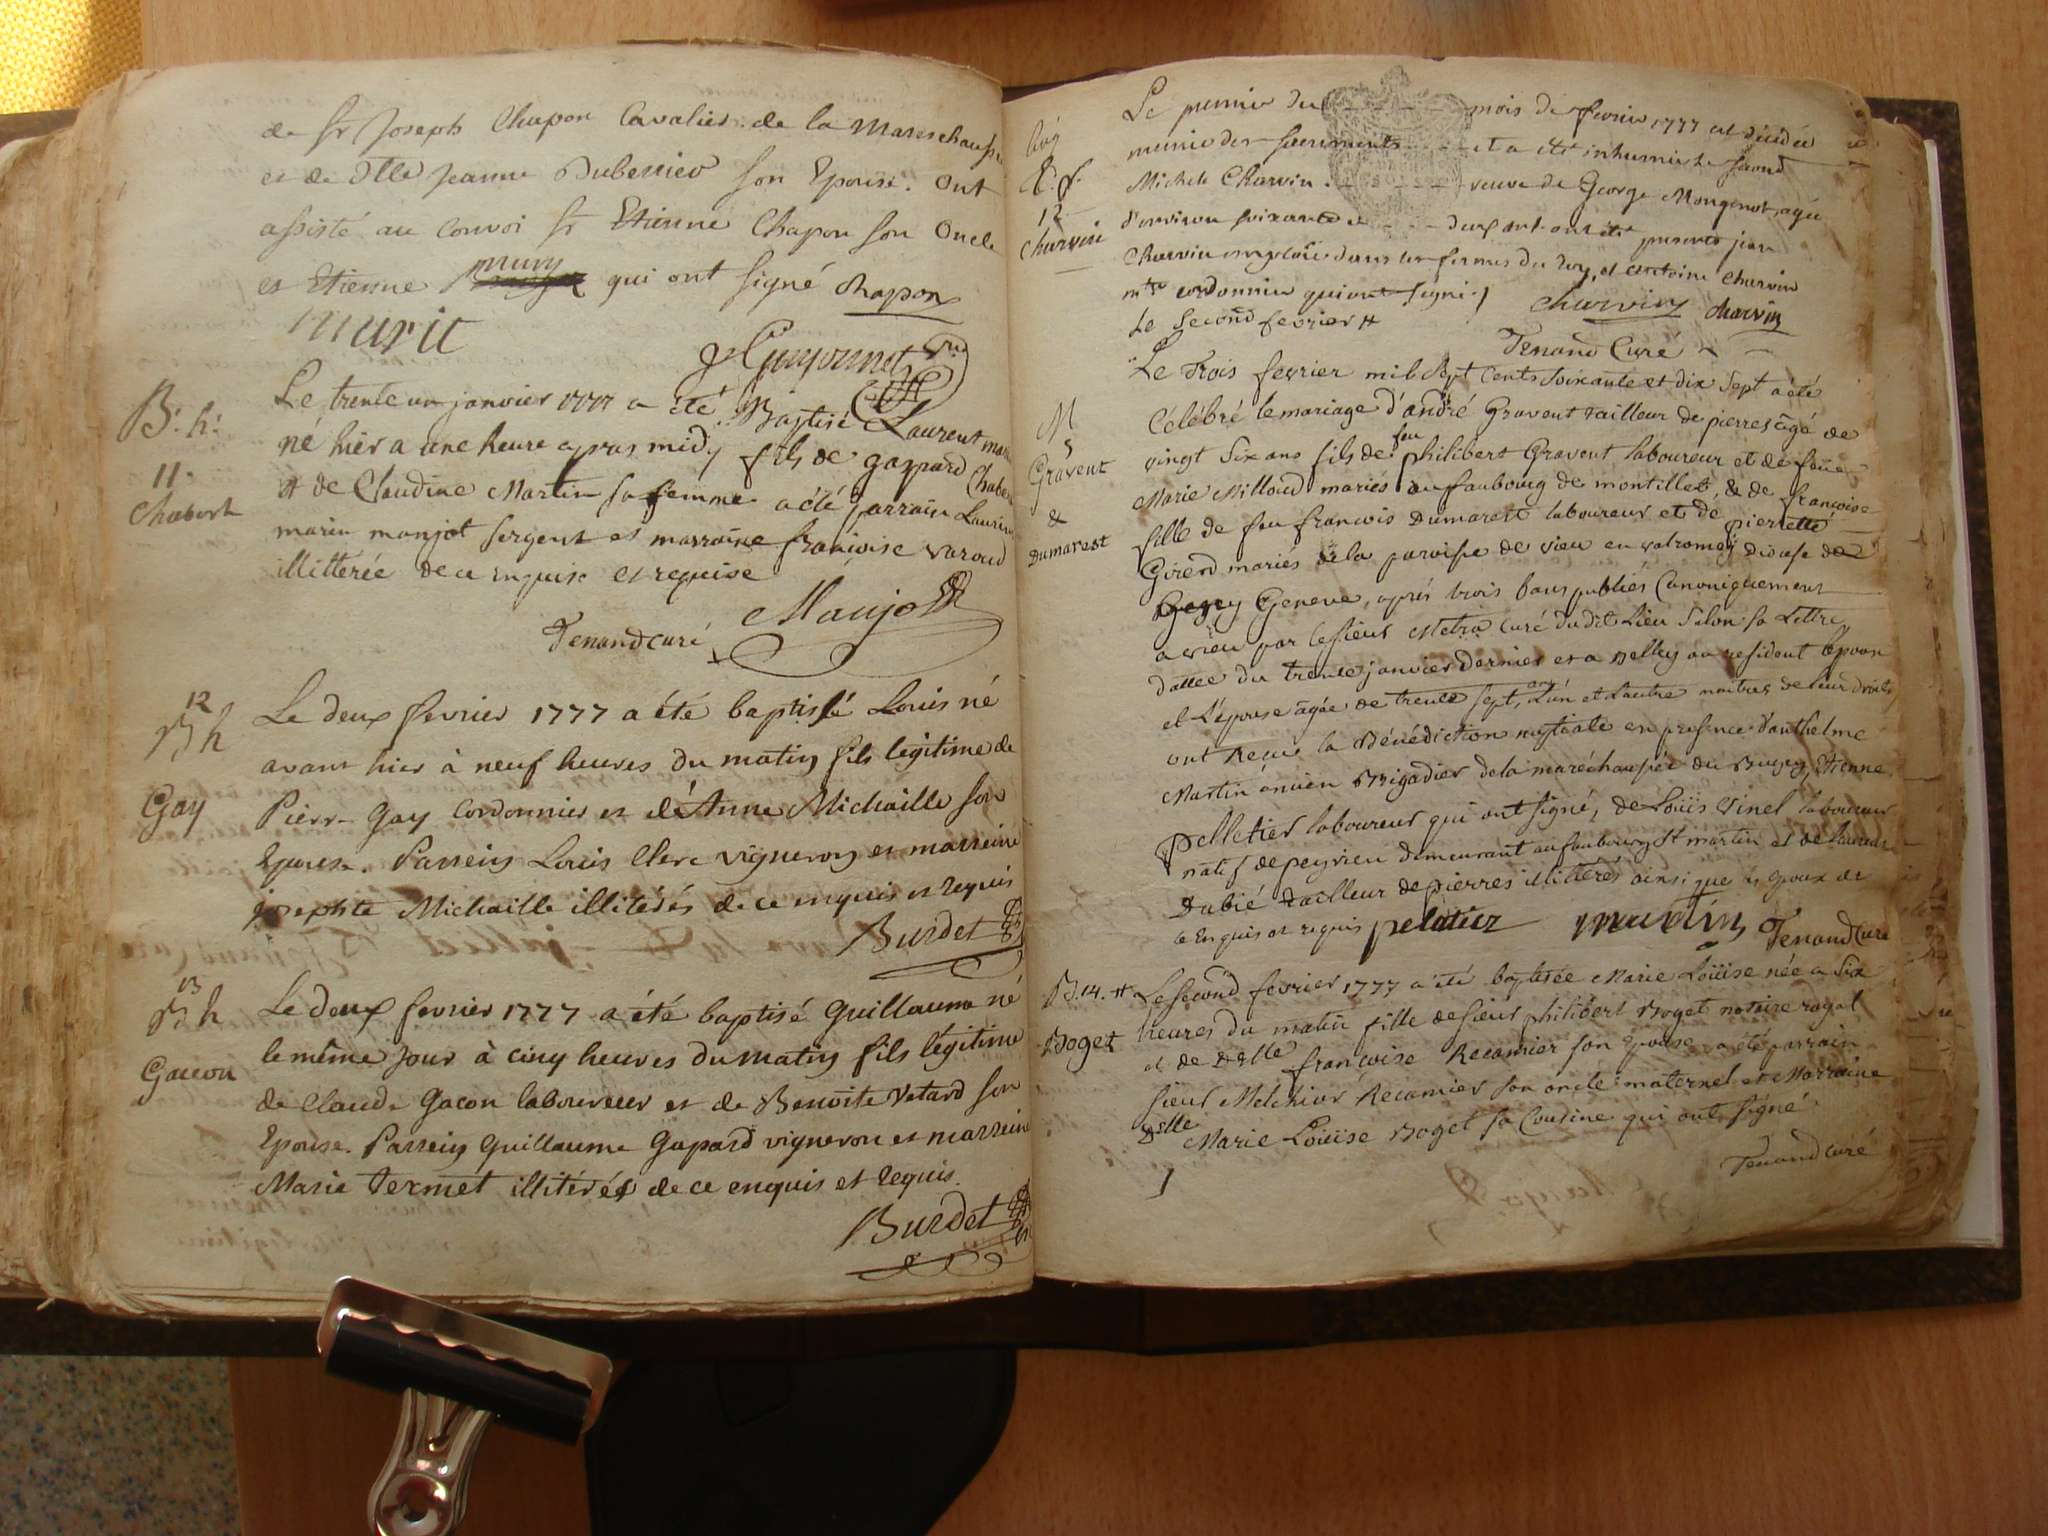 de Sr Joseph Chapon Cavalier de la Mareschaussé
et de Dlle Jeanne Dubessieu son Epouse. Ont
assisté au Convoi Sr Etienne Chapon son Oncle
et Etienne mury qui ont signé Chapon
muric
J Guyonnet
B. h.
11.
Chabert
Le trente un janvier 1777 a été Baptisé Laurent marin
né hier a une heure apras midy fils de gaspard Chabert
et de Claudine Martin sa femme a été parrain Laurent
marin manjot sergent et marraine francoise varoud
illitterée de ce enquise et requise
Manjot
Tenand curé
12
B h
Gay
Le deux fevrier 1777 a été baptisé Louis né
avant hier à neuf heures du matin fils legitime de
Pierre Gay Cordonnier et de Anne Michaille son
Epouse. Parrein Louis Clerc vigneron et marreine
josephte Michaille illitérés de ce enquis et requis
Burdet
13
B. h
Gacon
Le deux fevrier 1777 a été baptisé Guillaume né
le même jour à cinq heures du matin fils légitime
de Claude Gacon laboureur et de Benoite Vetard son
Epouse. Parrein Guillaume Gapard vigneron et marreine
Marie Termet illitérés de ce enquis et requis.
Burdet
E. f.
12
Charvin
Le premier du mois de fevrier 1777 est décédée
munie des sacrements et a été inhumée le second
Michele Charvin veuve de George Mongenot, agée
d'environ soixante et deux ans ont été presents jean
Charvin employé dans les fermes du Roy, et antoine Charvin
mtre cordonnier qui ont signé
Le Second fevrier
Charvin Charvin
Tenand Curé
M
5
Gravent
&
Dumarest
Le Trois fevrier mil sept cents soixante et dix sept a été
Célébré le mariage d'andré Gravent tailleur de pierres âgé de
vingt six ans fils de feu philibert Gravent laboureur et de feüe
Marie Milloud mariés au faubourg de montillet, & de françoise
fille de feu francois Dumarest laboureur et de pierrette
Girerd mariés de la paroisse de vieu en valromey diocese de
Geneve, après trois bans publiés Canoniquement
a vieu par le sieur Metra curé du dit lieu selon sa Lettre
dattée du trente janvier dernier et a Belley ou resident l'epoux
et L'epouse âgée de trente sept ans, L'un et L'autre maitres de leur droits,
ont Reçu la Bénédiction nuptiale en presence d'anthelme
Martin ancien Brigadier de la maréchaussée du Bugey, Etienne
pelletier laboureur qui ont signé, de Loüis Vinel laboureur
natif de peyrieu demeurant au faubourg St martin et de
Dubié tailleur de pierres illittérés ainsi que les epoux de
ce Enquis et requis pelatier martin Tenand Curé
B. 14.
Boget
Le second fevrier 1777 a été baptisée Marie Loüise née a six
heures du matin fille de sieur philibert Boget notaire royal
et de Delle françoise Recamier son epouse a été parrain
sieur Melchior Recamier son oncle maternel et Marraine
Delle Marie Loüise Boget sa Cousine qui ont signé
Tenand curé